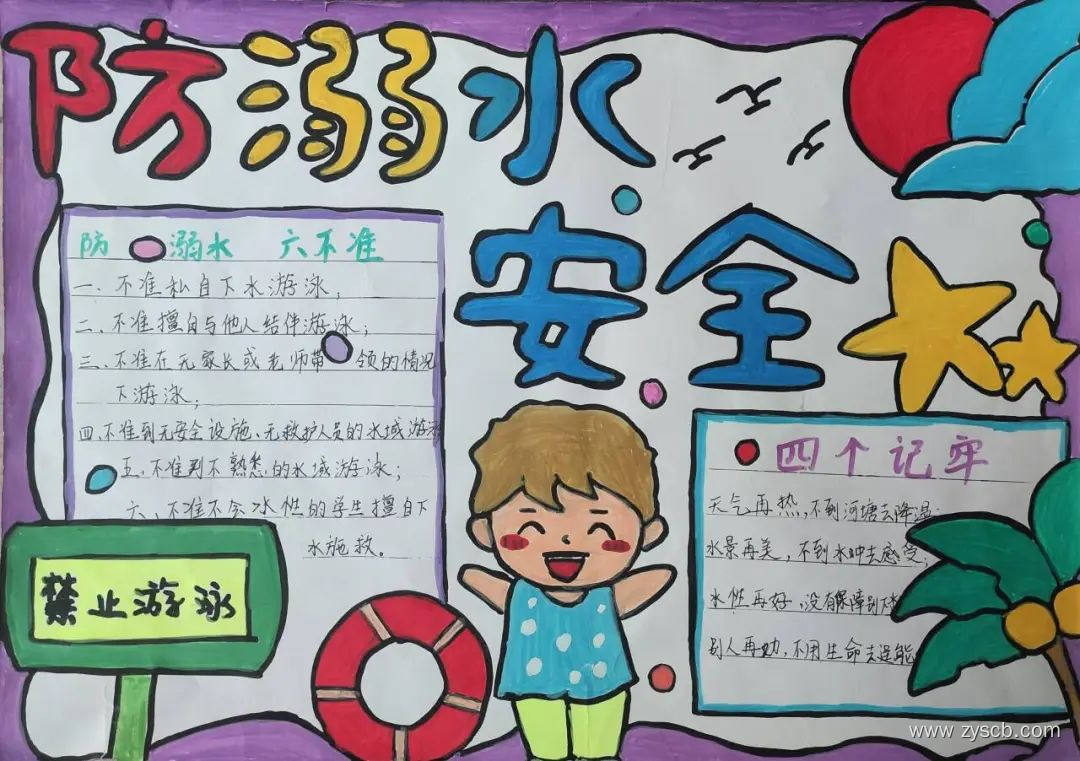 防溺水
安全
防 溺水 六不准
一、不准私自下水游泳;
二、不准擅自与他人结伴游泳;
三、不准在无家长或老师带领的情况
下游泳;
四、不准到无安全设施、无救护人员的水域游泳
五、不准到不熟悉的水域游泳;
六、不准不会水性的学生擅自下
水施救。
禁止游泳
四个记牢
天气再热,不到河塘去降温;
水景再美,不到水中去感受;
水性再好,没有保障别下
别人再劝,不用生命去逞能
www.zyscb.com